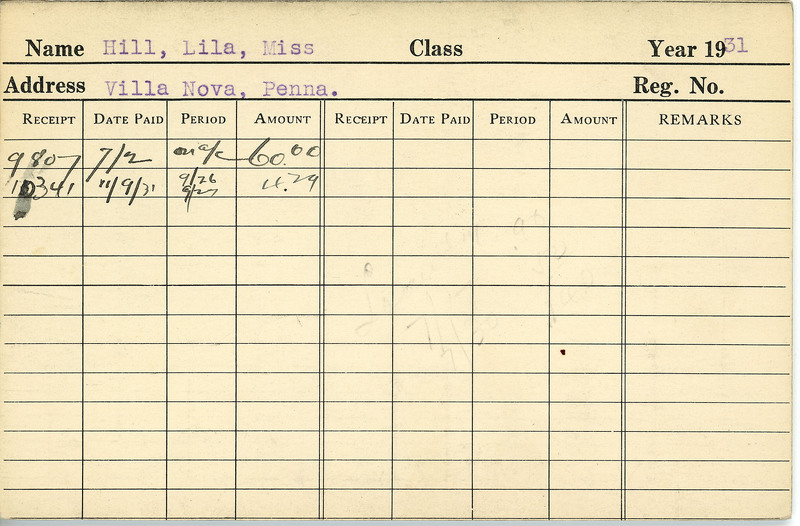 Name Hill, Lila, Miss Class Year 1931
Address Villa Nova, Penna. Reg. No.
RECEIPT DATE PAID PERIOD AMOUNT RECEIPT DATE PAID PERIOD AMOUNT REMARKS
9807 7/2 on a/c 60.00
10341 11/9/31 9/26 9/27 4.29